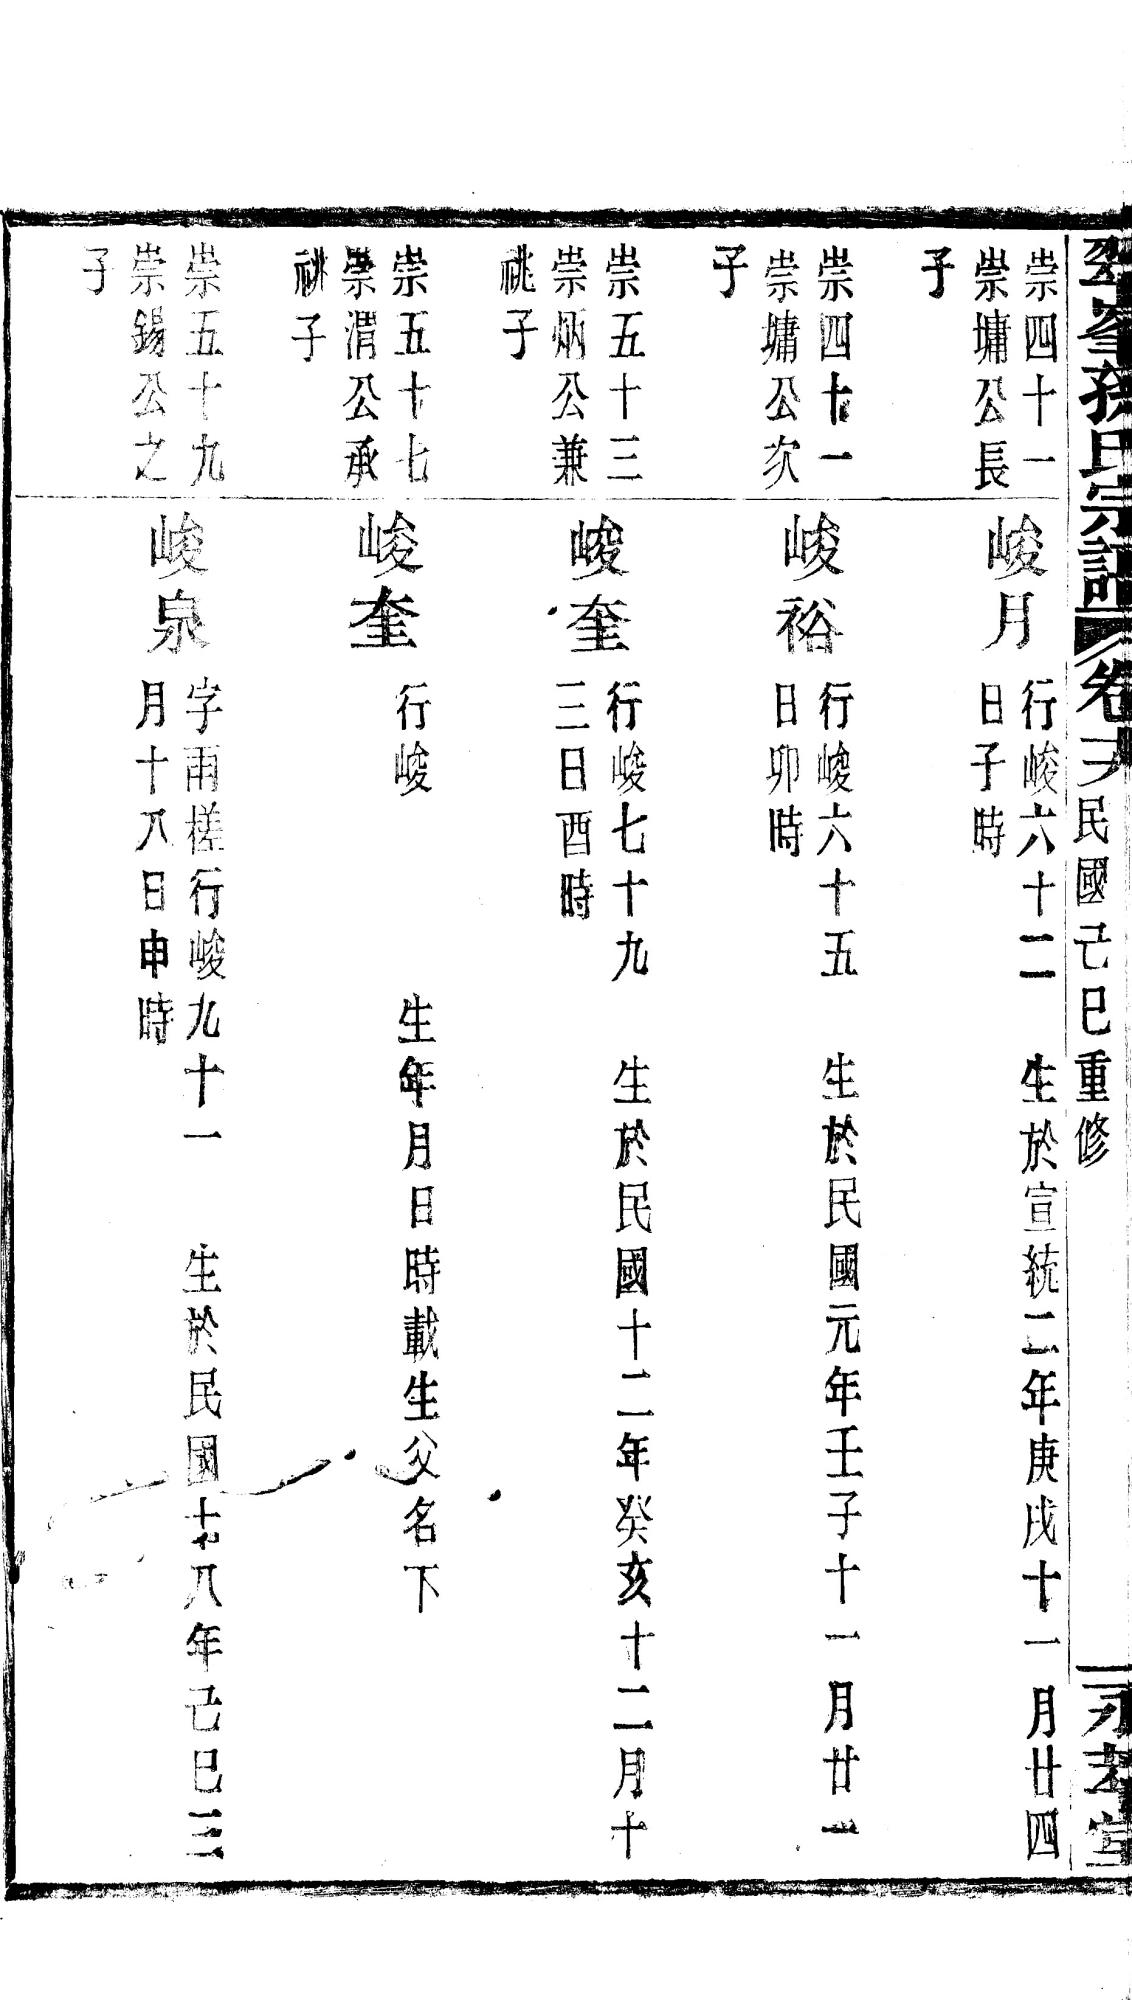 孫氏宗譜
民國己巳重修
崇四十一
崇墉公長
子
峻月
行峻六十二 生於宣統二年庚戌十一月廿四
日子時
崇四十一
崇墉公次
子
峻裕
行峻六十五 生於民國元年壬子十一月廿一
日卯時
崇五十三
崇炳公兼
祧子
峻奎
行峻七十九 生於民國十二年癸亥十二月十
三日酉時
崇五十七
崇渭公承
祧子
峻奎
行峻 生年月日時載生父名下
崇五十九
崇錫公之
子
峻泉
字雨槎行峻九十一 生於民國十八年己巳三
月十八日申時